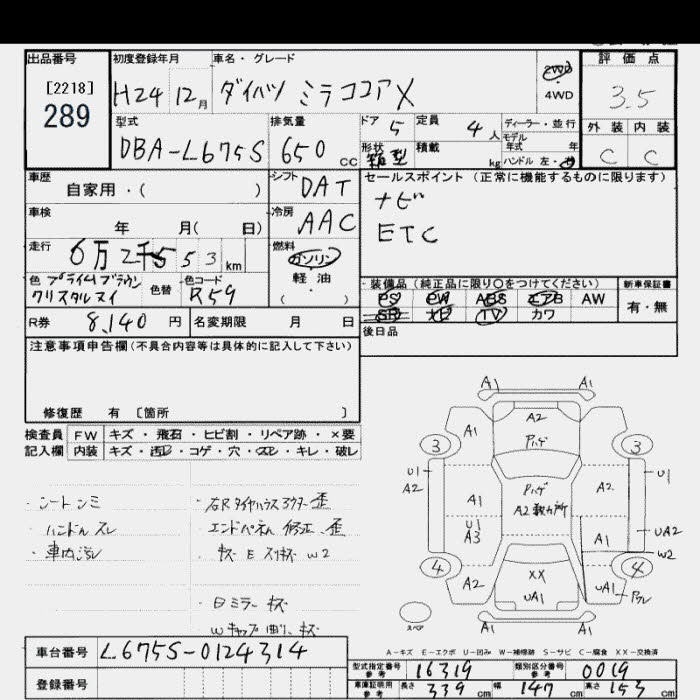 出品番号
[2218]
289
初度登録年月
H24 12月
車名・グレード
ダイハツ ミラココア X
2WD
4WD
評価点
3.5
外装 内装
C C
型式
DBA-L675S
排気量
650 cc
ドア 5
形状
箱型
定員 4人
積載 kg
ディーラー・並行
モデル
年式 年
ハンドル 左・右
車歴
自家用・( )
シフト DAT
セールスポイント(正常に機能するものに限ります)
ナビ
ETC
車検
年 月( 日)
冷房 AAC
走行
6万2千553km
燃料
ガソリン
軽油
( ・ )
色 プライムブラウン
クリスタルマイ
色替
色コード
R59
・装備品(純正品に限り○をつけてください)
PS PW ABS エアB AW
SR ナビ TV カワ
新車保証書
有・無
R券 8,140円
名変期限 月 日
後日品
注意事項申告欄(不具合内容等は具体的に記入して下さい)
修復歴 有 〔箇所 〕
検査員 FW キズ・飛石・ヒビ割・リペア跡・×要
記入欄 内装 キズ・汚レ・コゲ・穴・スレ・キレ・破レ
・シートシミ
・ハンドルスレ
・車内汚レ
・右Rタイヤハウスコウター歪
・エンドパネル 修正、歪
・キズ E スリキズ W2
・日ミラー キズ
A1 A1
A2
A1
ハゲ
3 3
U1 U1
A2
ハゲ
A2
A1
A2
U1
A3
A1
UA2
W2
4 4
A2
XX
UA1
UA1
スペア
A1 A1
A-キズ E-エクボ U-凹み W-補修跡 S-サビ C-腐食 XX-交換済
車台番号 L675S-0124314
登録番号
型式指定番号
参考
16319
類別区分番号
参考
0019
車庫証明用
参考
長さ 339cm 幅 147cm 高さ 153cm